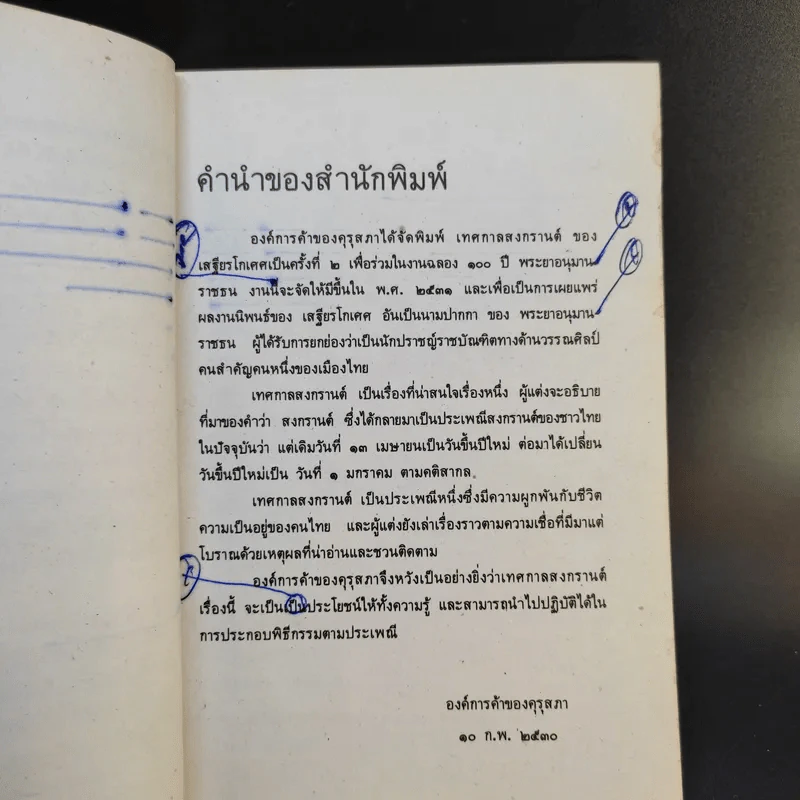 คำนำของสำนักพิมพ์
องค์การค้าของคุรุสภาได้จัดพิมพ์ เทศกาลสงกรานต์ ของ
เสฐียรโกเศศเป็นครั้งที่ ๒ เพื่อร่วมในงานฉลอง ๑๐๐ ปี พระยาอนุมาน-
ราชธน งานนี้จะจัดให้มีขึ้นใน พ.ศ. ๒๕๓๑ และเพื่อเป็นการเผยแพร่
ผลงานนิพนธ์ของ เสฐียรโกเศศ อันเป็นนามปากกา ของ พระยาอนุมาน-
ราชธน ผู้ได้รับการยกย่องว่าเป็นนักปราชญ์ราชบัณฑิตทางด้านวรรณศิลป์
คนสำคัญคนหนึ่งของเมืองไทย
เทศกาลสงกรานต์ เป็นเรื่องที่น่าสนใจเรื่องหนึ่ง ผู้แต่งจะอธิบาย
ที่มาของคำว่า สงกรานต์ ซึ่งได้กลายมาเป็นประเพณีสงกรานต์ของชาวไทย
ในปัจจุบันว่า แต่เดิมวันที่ ๑๓ เมษายนเป็นวันขึ้นปีใหม่ ต่อมาได้เปลี่ยน
วันขึ้นปีใหม่เป็น วันที่ ๑ มกราคม ตามคติสากล
เทศกาลสงกรานต์ เป็นประเพณีหนึ่งซึ่งมีความผูกพันกับชีวิต
ความเป็นอยู่ของคนไทย และผู้แต่งยังเล่าเรื่องราวตามความเชื่อที่มีมาแต่
โบราณด้วยเหตุผลที่น่าอ่านและชวนติดตาม
องค์การค้าของคุรุสภาจึงหวังเป็นอย่างยิ่งว่าเทศกาลสงกรานต์
เรื่องนี้ จะเป็นเป็นประโยชน์ให้ทั้งความรู้ และสามารถนำไปปฏิบัติได้ใน
การประกอบพิธีกรรมตามประเพณี
องค์การค้าของคุรุสภา
๑๐ ก.พ. ๒๕๓๐